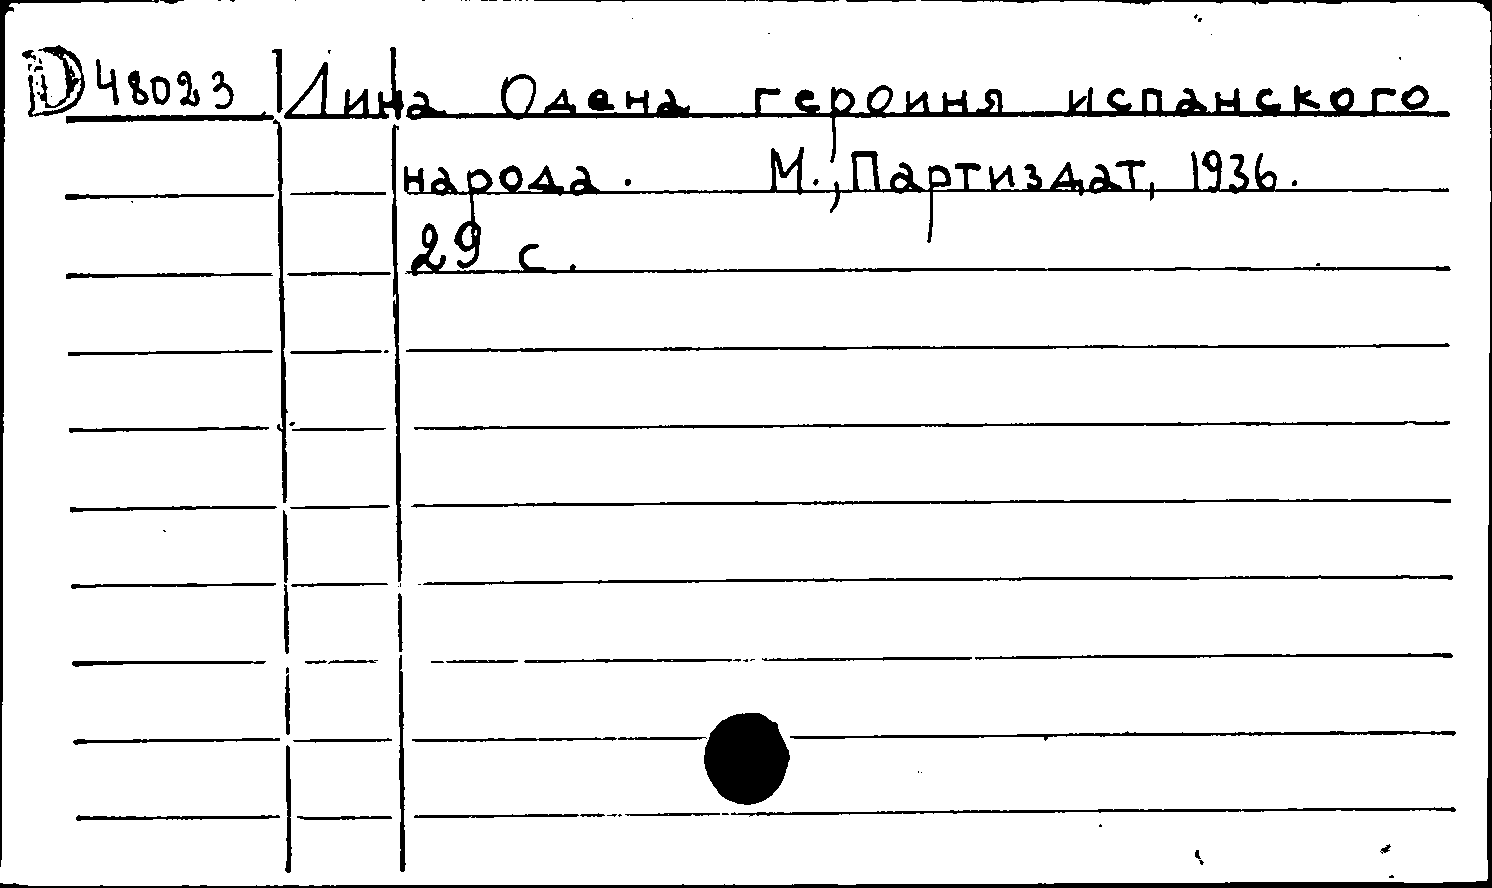 D 48023 Лина Одена героиня испанского
народа. М., Партиздат, 1936.
29 с.